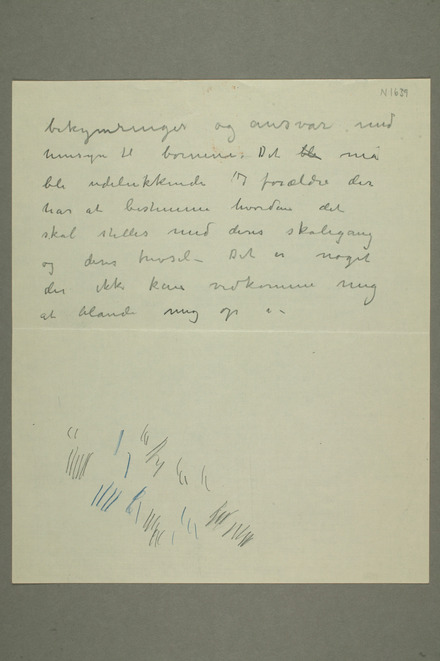 N 1639
bekymringer og ansvar med
hensyn til børnene. Det ble må
bli udelukkende foreldre der
har at bestemme hvordan det
skal stilles med deres skolegang
og deres trivsel – Det er noget
der ikke kan vedkomme mig
at blande mig op i –